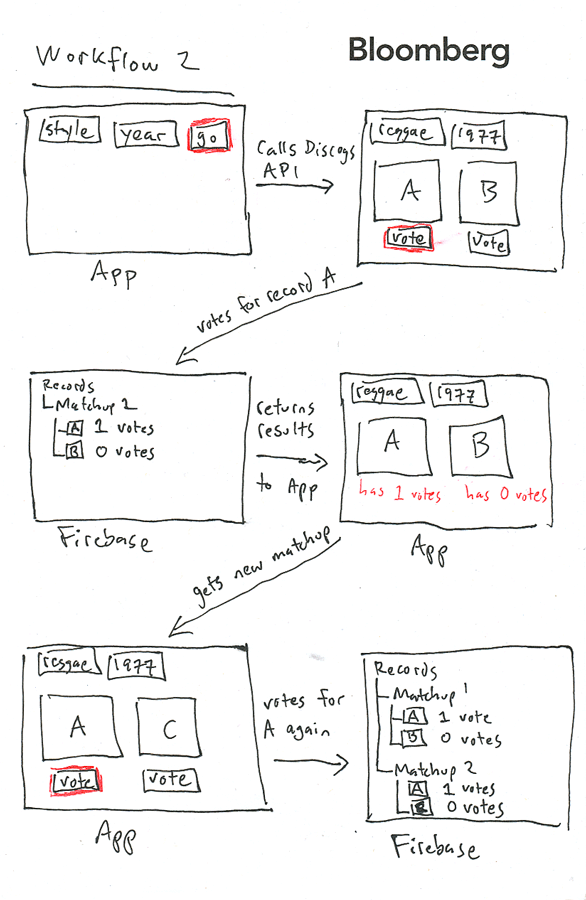 Workflow 2
Bloomberg
style year go
App
Calls Discogs
API
reggae 1977
A B
vote vote
votes for record A
Records
Matchup 1
A 1 votes
B 0 votes
Firebase
returns
results
to App
reggae 1977
A B
has 1 votes has 0 votes
App
gets new matchup
reggae 1977
A C
vote vote
App
votes for
A again
Records
Matchup 1
A 1 vote
B 0 votes
Matchup 2
A 1 votes
0 votes
Firebase